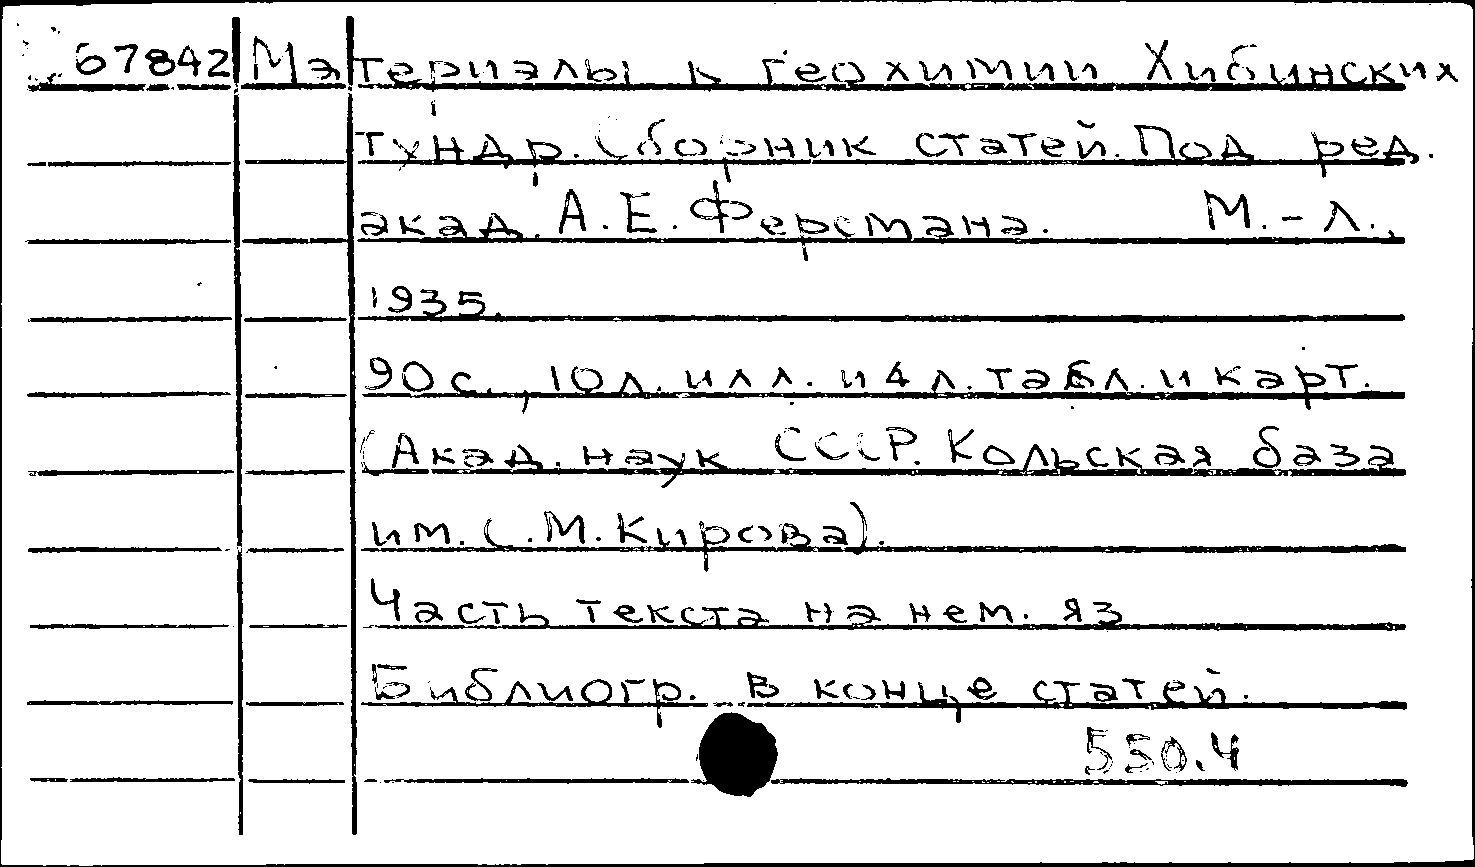 67842 Материалы к геохимии Хибинских
тундр. Сборник статей. Под ред.
акад. А.Е. Ферсмана. М.-Л.,
1935.
90 с., 10 л. илл. и 4 л. табл. и карт.
(Акад. наук СССР. Кольская база
им. С.М. Кирова).
Часть текста на нем. яз
Библиогр. в конце статей.
550.4